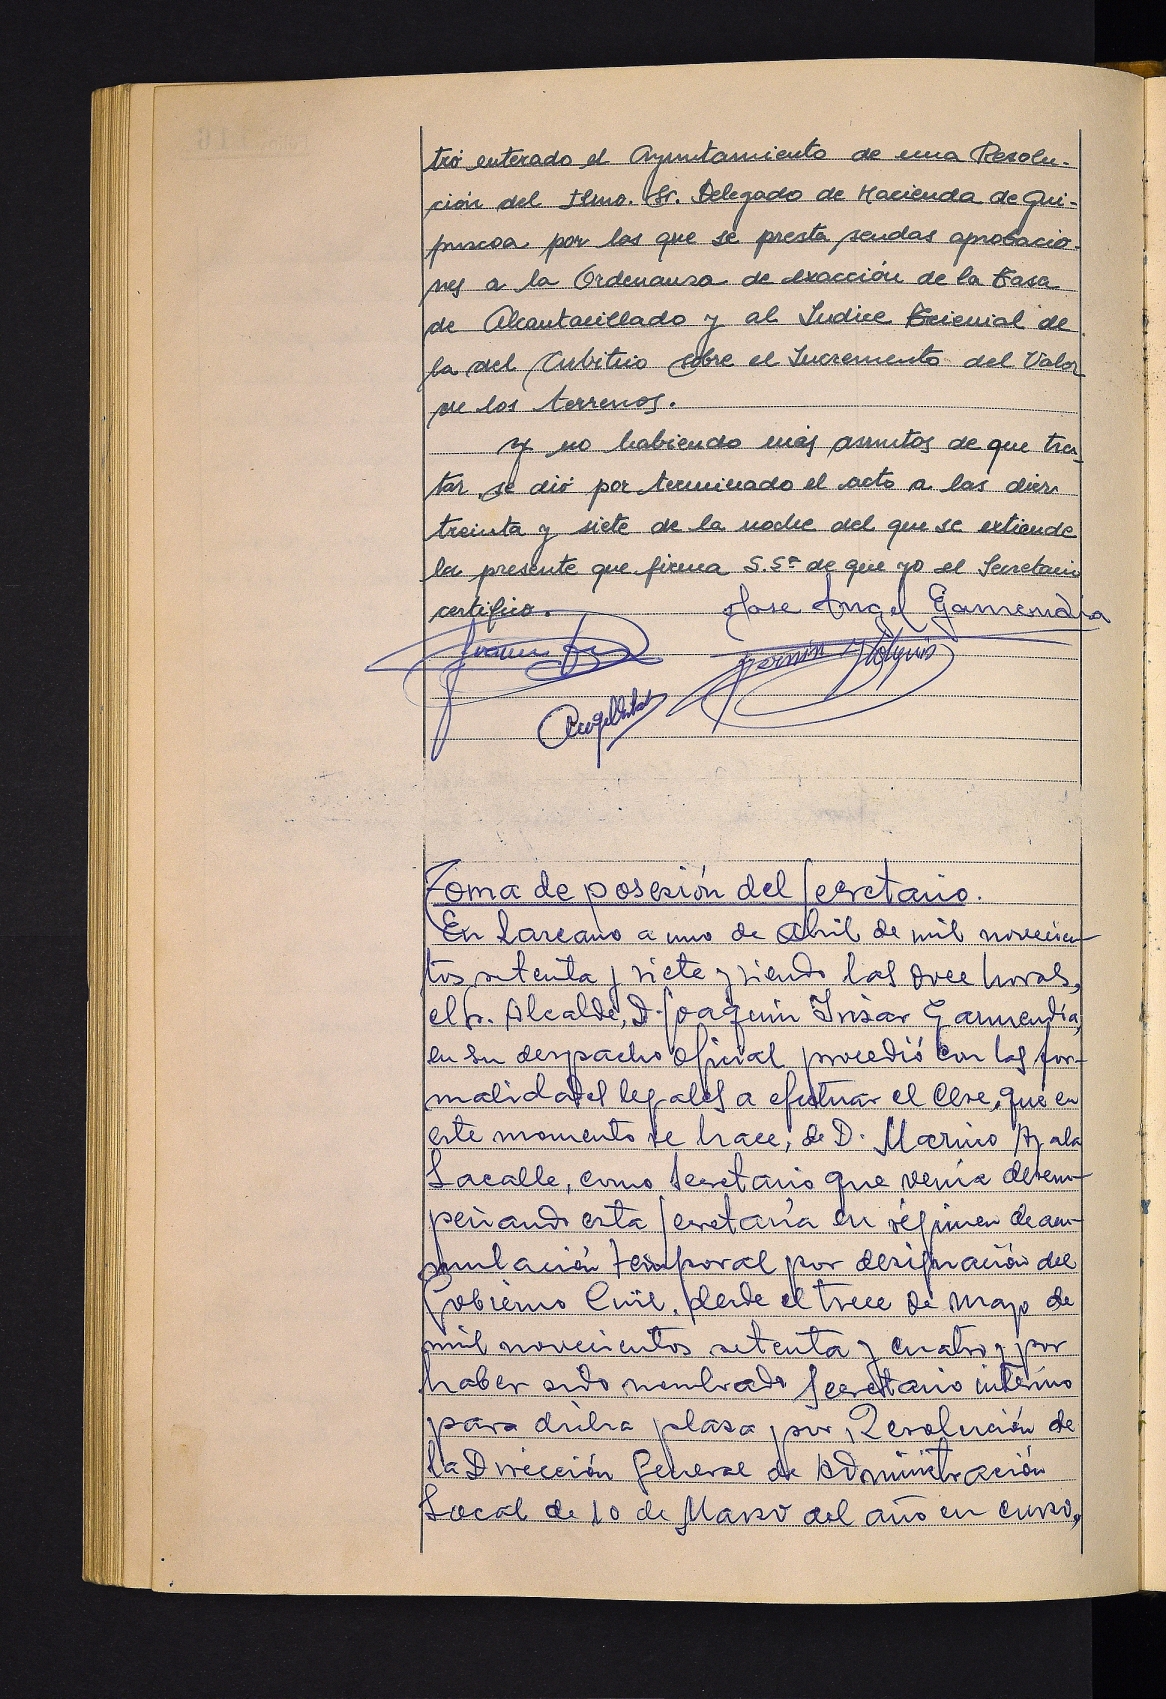 tró enterado el Ayuntamiento de una Resolu-
ción del Ilmo. Sr. Delegado de Hacienda de Gui-
puscoa por las que se presta sendas aprobacio-
nes a la Ordenanza de exacción de la tasa
de Alcantarillado y al Indice trienial de
la del Arbitrio sobre el Incremento del Valor
de los terrenos.
Y no habiendo más asuntos de que tra-
tar, se dió por terminado el acto a las diez
treinta y siete de la noche del que se extiende
la presente que firma S.Sª de que yo el Secretario
certifico.
Jose Angel Garmendia
Toma de posesión del Secretario.
En Lazcano a uno de Abril de mil novecien-
tos setenta y siete y siendo las doce horas,
el Sr. Alcalde, D. Joaquin Irizar Garmendia,
en su despacho oficial procedió con las for-
malidades legales a efectuar el Cese, que en
este momento se hace, de D. Marino Ayala
Lacalle, como Secretario que venía desem-
peñando esta Secretaría en régimen de acu-
mulación temporal por designación del
Gobierno Civil, desde el trece de mayo de
mil novecientos setenta y cuatro y por
haber sido nombrado Secretario interino
para dicha plaza por Resolución de
la Dirección General de Administración
Local de 10 de Marzo del año en curso,